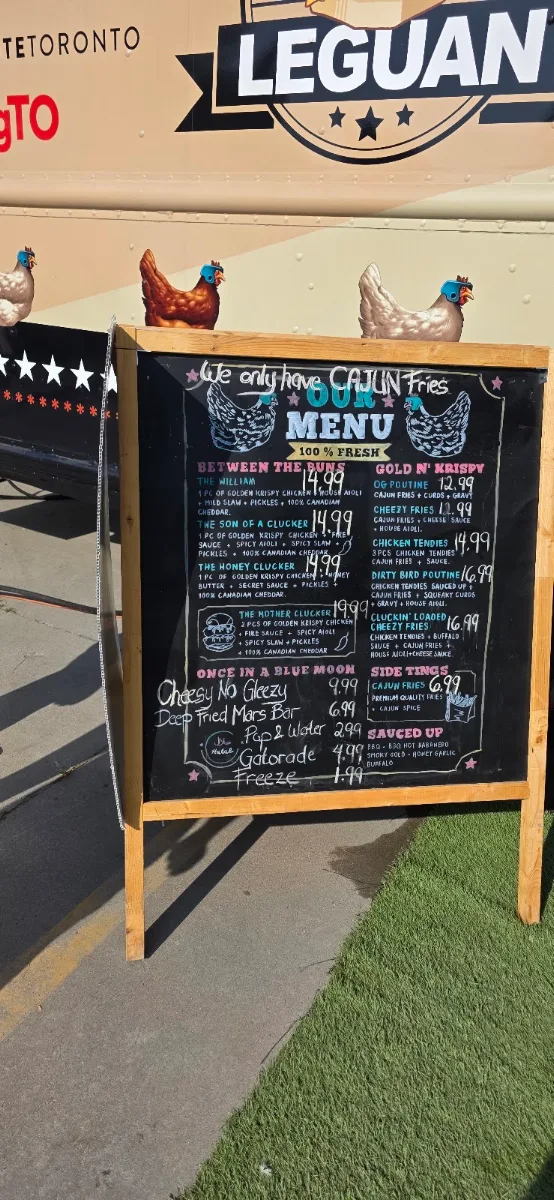 TETORONTO
gTO
LEGUAN
We only have CAJUN Fries
OUR
MENU
100 % FRESH
BETWEEN THE BUNS
THE WILLIAM 14.99
1 PC OF GOLDEN KRISPY CHICKEN + HOUSE AIOLI
+ MILD SLAW + PICKLES + 100% CANADIAN
CHEDDAR.
THE SON OF A CLUCKER 14.99
1 PC OF GOLDEN KRISPY CHICKEN + FIRE
SAUCE + SPICY AIOLI + SPICY SLAW +
PICKLES + 100% CANADIAN CHEDDAR
THE HONEY CLUCKER 14.99
1 PC OF GOLDEN KRISPY CHICKEN + HONEY
BUTTER + SECRET SAUCE + PICKLES +
100% CANADIAN CHEDDAR.
THE MOTHER CLUCKER 19.99
2 PCS OF GOLDEN KRISPY CHICKEN
+ FIRE SAUCE + SPICY AIOLI
+ SPICY SLAW + PICKLES
+ 100% CANADIAN CHEDDAR
ONCE IN A BLUE MOON
Cheesy No Gleezy 9.99
Deep Fried Mars Bar 6.99
Pop & Water 2.99
Halal
Gatorade 4.99
Freeze 1.99
GOLD N' KRISPY
OG POUTINE 12.99
CAJUN FRIES + CURDS + GRAVY
CHEEZY FRIES 12.99
CAJUN FRIES + CHEESE SAUCE
+ HOUSE AIOLI.
CHICKEN TENDIES 14.99
3 PCS CHICKEN TENDIES
CAJUN FRIES + SAUCE.
DIRTY BIRD POUTINE 16.99
CHICKEN TENDIES SAUCED UP +
CAJUN FRIES + SQUEAKY CURDS
+ GRAVY + HOUSE AIOLI.
CLUCKIN' LOADED
CHEEZY FRIES 16.99
CHICKEN TENDIES + BUFFALO
SAUCE + CAJUN FRIES +
HOUSE AIOLI+CHEESE SAUCE
SIDE TINGS
CAJUN FRIES 6.99
PREMIUM QUALITY FRIES
+ CAJUN SPICE
SAUCED UP
BBQ - BBQ HOT HABANERO
SMOKY GOLD - HONEY GARLIC
BUFFALO